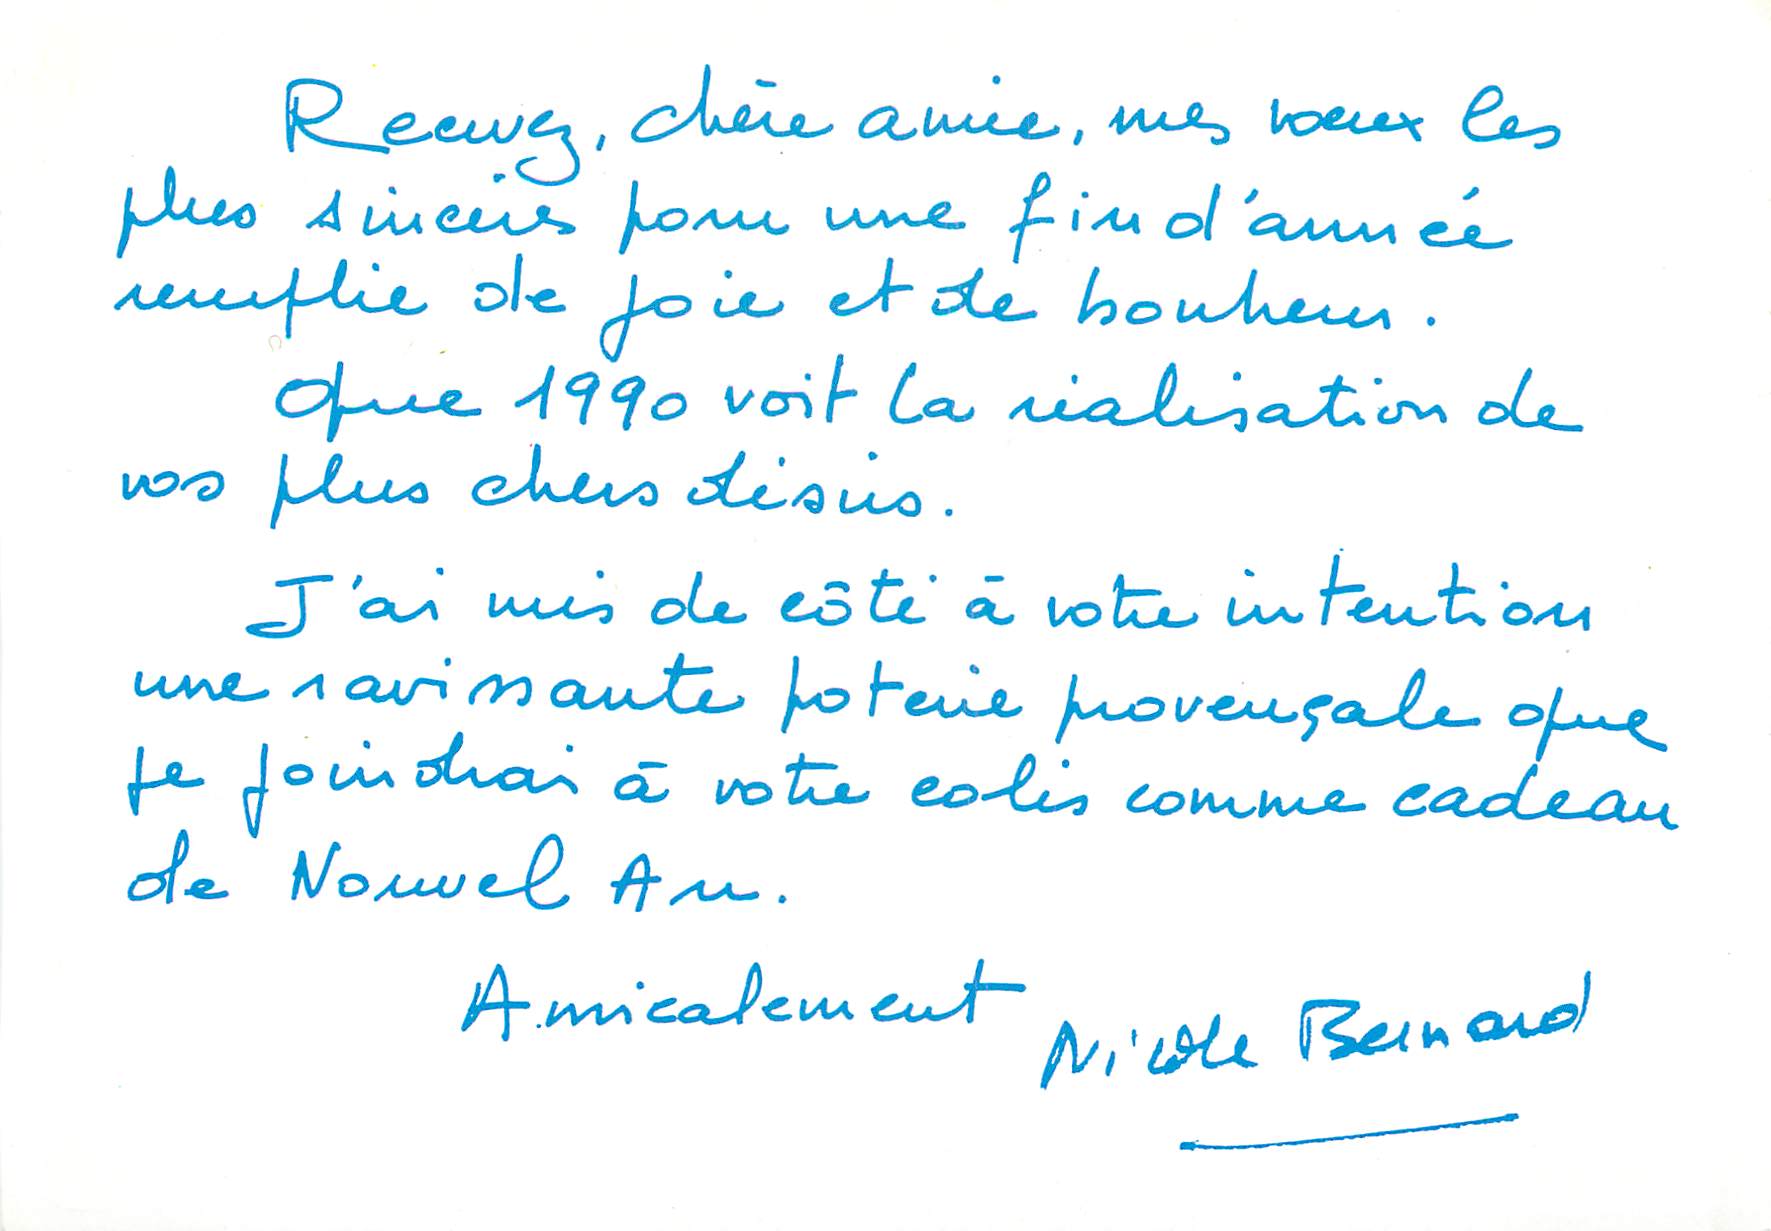 Recevez, chère amie, mes voeux les
plus sincères pour une fin d'année
remplie de joie et de bonheur.
Que 1990 voit la réalisation de
vos plus chers désirs.
J'ai mis de côté à votre intention
une ravissante poterie provençale que
je joindrai à votre colis comme cadeau
de Nouvel An.
Amicalement
Nicole Bernard